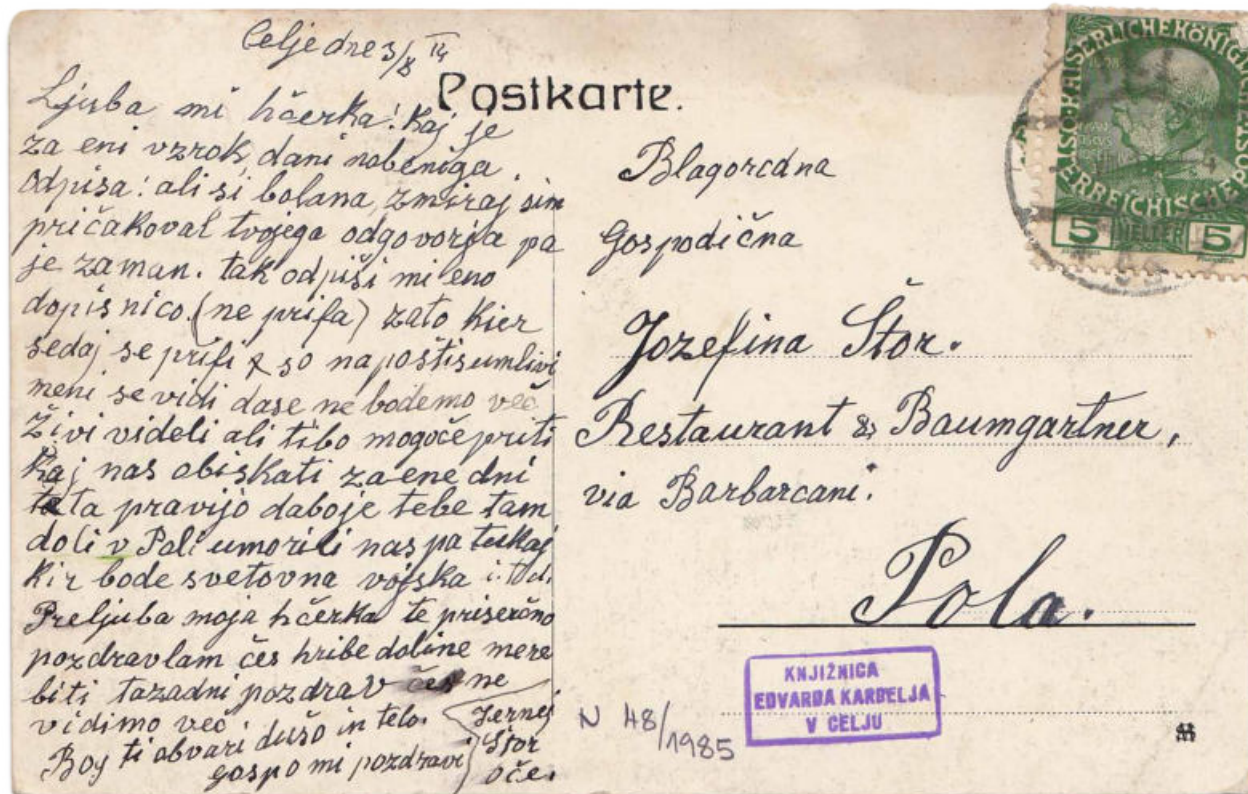 Celje dne 3/8 14
Postkarte.
Ljuba mi hčerka! Kaj je
za eni vzrok, dani nobeniga
odpisa! ali si bolana, zmiraj sim
pričakoval tvojega odgovorja pa
je zaman. tak odpiši mi eno
dopisnico (ne prifa) zato kier
sedaj se prifi so na poštisumlivi
meni se vidi dase ne bodemo več
živi videli ali tibo mogoče priti
kaj nas obiskati za ene dni
teta pravijo daboje tebe tam
doli v Poli umorili nas pa tukaj
kir bode svetovna vojska i.t.d.
Preljuba moja hčerka te priserčno
pozdravlam čes hribe doline mere
biti tazadni pozdrav če se ne
vidimo več.
Bog ti obvari dušo in telo.
gospo mi pozdravi
Jernej
Štor
oče.
Blagorodna
Gospodična
Jozefina Štor.
Restaurant & Baumgartner,
via Barbarcani.
Pola.
KNJIŽNICA
EDVARDA KARDELJA
V CELJU
N 48/1985
KAISERLICHEKÖNIGLICHE
ÖSTERREICHISCHEPOST
5 HELLER 5